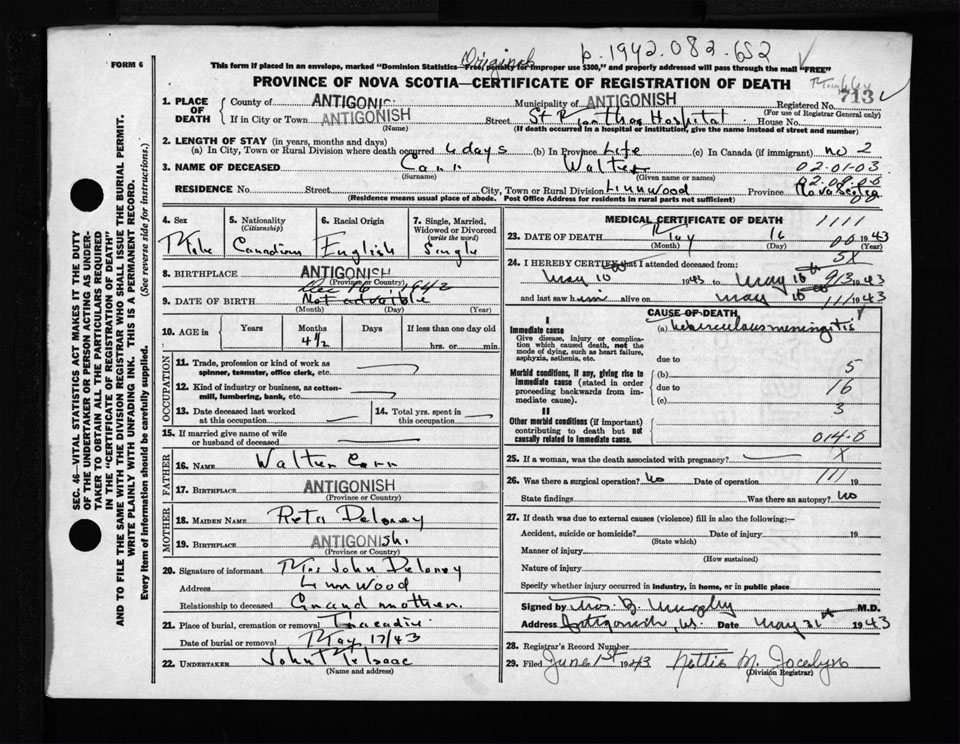 FORM 6
This form if placed in an envelope, marked "Dominion Statistics—Free, penalty for improper use $300," and properly addressed will pass through the mail "FREE"
Original
p. 1942.082.652
PROVINCE OF NOVA SCOTIA—CERTIFICATE OF REGISTRATION OF DEATH
1. PLACE OF DEATH
County of ANTIGONISH Municipality of ANTIGONISH Registered No. 713
(For use of Registrar General only)
If in City or Town ANTIGONISH Street St Martha's Hospital House No.
(Name) (If death occurred in a hospital or institution, give the name instead of street and number)
2. LENGTH OF STAY (in years, months and days)
(a) In City, Town or Rural Division where death occurred 6 days (b) In Province Life (c) In Canada (if immigrant) no 2
3. NAME OF DECEASED Walter 02-01-03
(Surname) (Given name or names) 02-08-00
RESIDENCE No. Street City, Town or Rural Division Linnwood Province Nova Scotia
(Residence means usual place of abode. Post Office Address for residents in rural parts not sufficient)
4. Sex
Male
5. Nationality (Citizenship)
Canadian
6. Racial Origin
English
7. Single, Married, Widowed or Divorced (write the word)
Single
8. BIRTHPLACE ANTIGONISH
(Province or Country)
Dec 16 1942
9. DATE OF BIRTH
(Month) (Day) (Year)
10. AGE in Years Months Days If less than one day old
4½ hrs. or min.
OCCUPATION
11. Trade, profession or kind of work as spinner, teamster, office clerk, etc.
12. Kind of industry or business, as cotton-mill, lumbering, bank, etc.
13. Date deceased last worked at this occupation
14. Total yrs. spent in this occupation
15. If married give name of wife or husband of deceased
FATHER
16. NAME Walter
17. BIRTHPLACE ANTIGONISH
(Province or Country)
MOTHER
18. MAIDEN NAME Reta Deloney
19. BIRTHPLACE ANTIGONISH
(Province or Country)
20. Signature of informant Mrs John Deloney
Address Linnwood
Relationship to deceased Grandmother.
21. Place of burial, cremation or removal Tracadie
Date of burial or removal May 17/43
22. UNDERTAKER John McIsaac
(Name and Address)
MEDICAL CERTIFICATE OF DEATH
1111
23. DATE OF DEATH May 16 1943
(Month) (Day) (Year)
24. I HEREBY CERTIFY that I attended deceased from:
5X
May 10 1943 to May 16 1943
and last saw him alive on May 16 1943
CAUSE OF DEATH
I
Immediate cause
Give disease, injury or complication which caused death, not the mode of dying, such as heart failure, asphyxia, asthenia, etc.
(a) tuberculous meningitis
due to
Morbid conditions, if any, giving rise to immediate cause (stated in order proceeding backwards from immediate cause)
(b) 5
due to 16
(c) 3
II
Other morbid conditions (if important) contributing to death but not causally related to immediate cause.
014.0
25. If a woman, was the death associated with pregnancy? X
26. Was there a surgical operation? No Date of operation 111 19
State findings Was there an autopsy? No
27. If death was due to external causes (violence) fill in also the following:—
Accident, suicide or homicide? Date of injury 19
(State which)
Manner of injury
(How sustained)
Nature of injury
Specify whether injury occurred in industry, in home, or in public place
Signed by Thos. G. Murphy M.D.
Address Antigonish, N.S. Date May 31st 1943
28. Registrar's Record Number
29. Filed June 1st 1943 Nettie M. Jocelyn
(Division Registrar)
SEC. 46—VITAL STATISTICS ACT MAKES IT THE DUTY
OF THE UNDERTAKER OR PERSON ACTING AS UNDERTAKER TO OBTAIN ALL THE PARTICULARS REQUIRED
IN THE "CERTIFICATE OF REGISTRATION OF DEATH"
AND TO FILE THE SAME WITH THE DIVISION REGISTRAR WHO SHALL ISSUE THE BURIAL PERMIT.
WRITE PLAINLY WITH UNFADING INK. THIS IS A PERMANENT RECORD.
Every item of information should be carefully supplied. (See reverse side for instructions.)